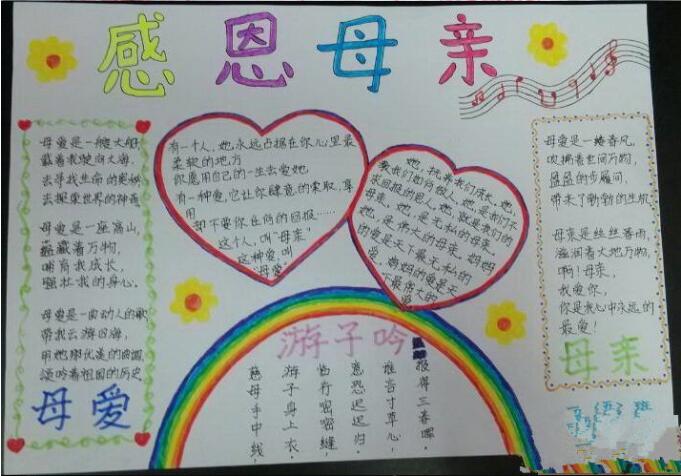 感恩母亲
母爱是一艘大船,
载着我驶向大海,
去寻找生命的奥妙
去探索世界的神秘
母爱是一座高山,
蕴藏着万物,
哺育我成长,
强壮我的身心。
母爱是一曲动人的歌
带我去游四海,
用她那优美的曲调
颂吟着祖国的历史
母爱
有一个人,她永远占据在你心里最
柔软的地方
你愿用自己的一生去爱她
有一种爱,它让你肆意的索取,享
用
却不要你任何的回报……
这个人,叫“母亲”
这种爱,叫
“母爱”
她,抚养我们成长,她,
教我们如何做人,她,是我们不
求回报的恩人,她,就是我们的
母亲,她,是无私的母亲,
她,是伟大的母亲,妈妈
的爱是天下最无私的
爱,妈妈的爱是天
下最伟大的
爱
母爱是一缕春风,
吹拂着世间万物,
盈盈的步履间,
带来了勃勃的生机
母亲是丝丝春雨,
滋润着大地万物,
啊!母亲,
我爱你,
你是我心中永远的
最爱!
母亲
游子吟
慈母手中线,
游子身上衣。
临行密密缝,
意恐迟迟归。
谁言寸草心,
报得三春晖。
班